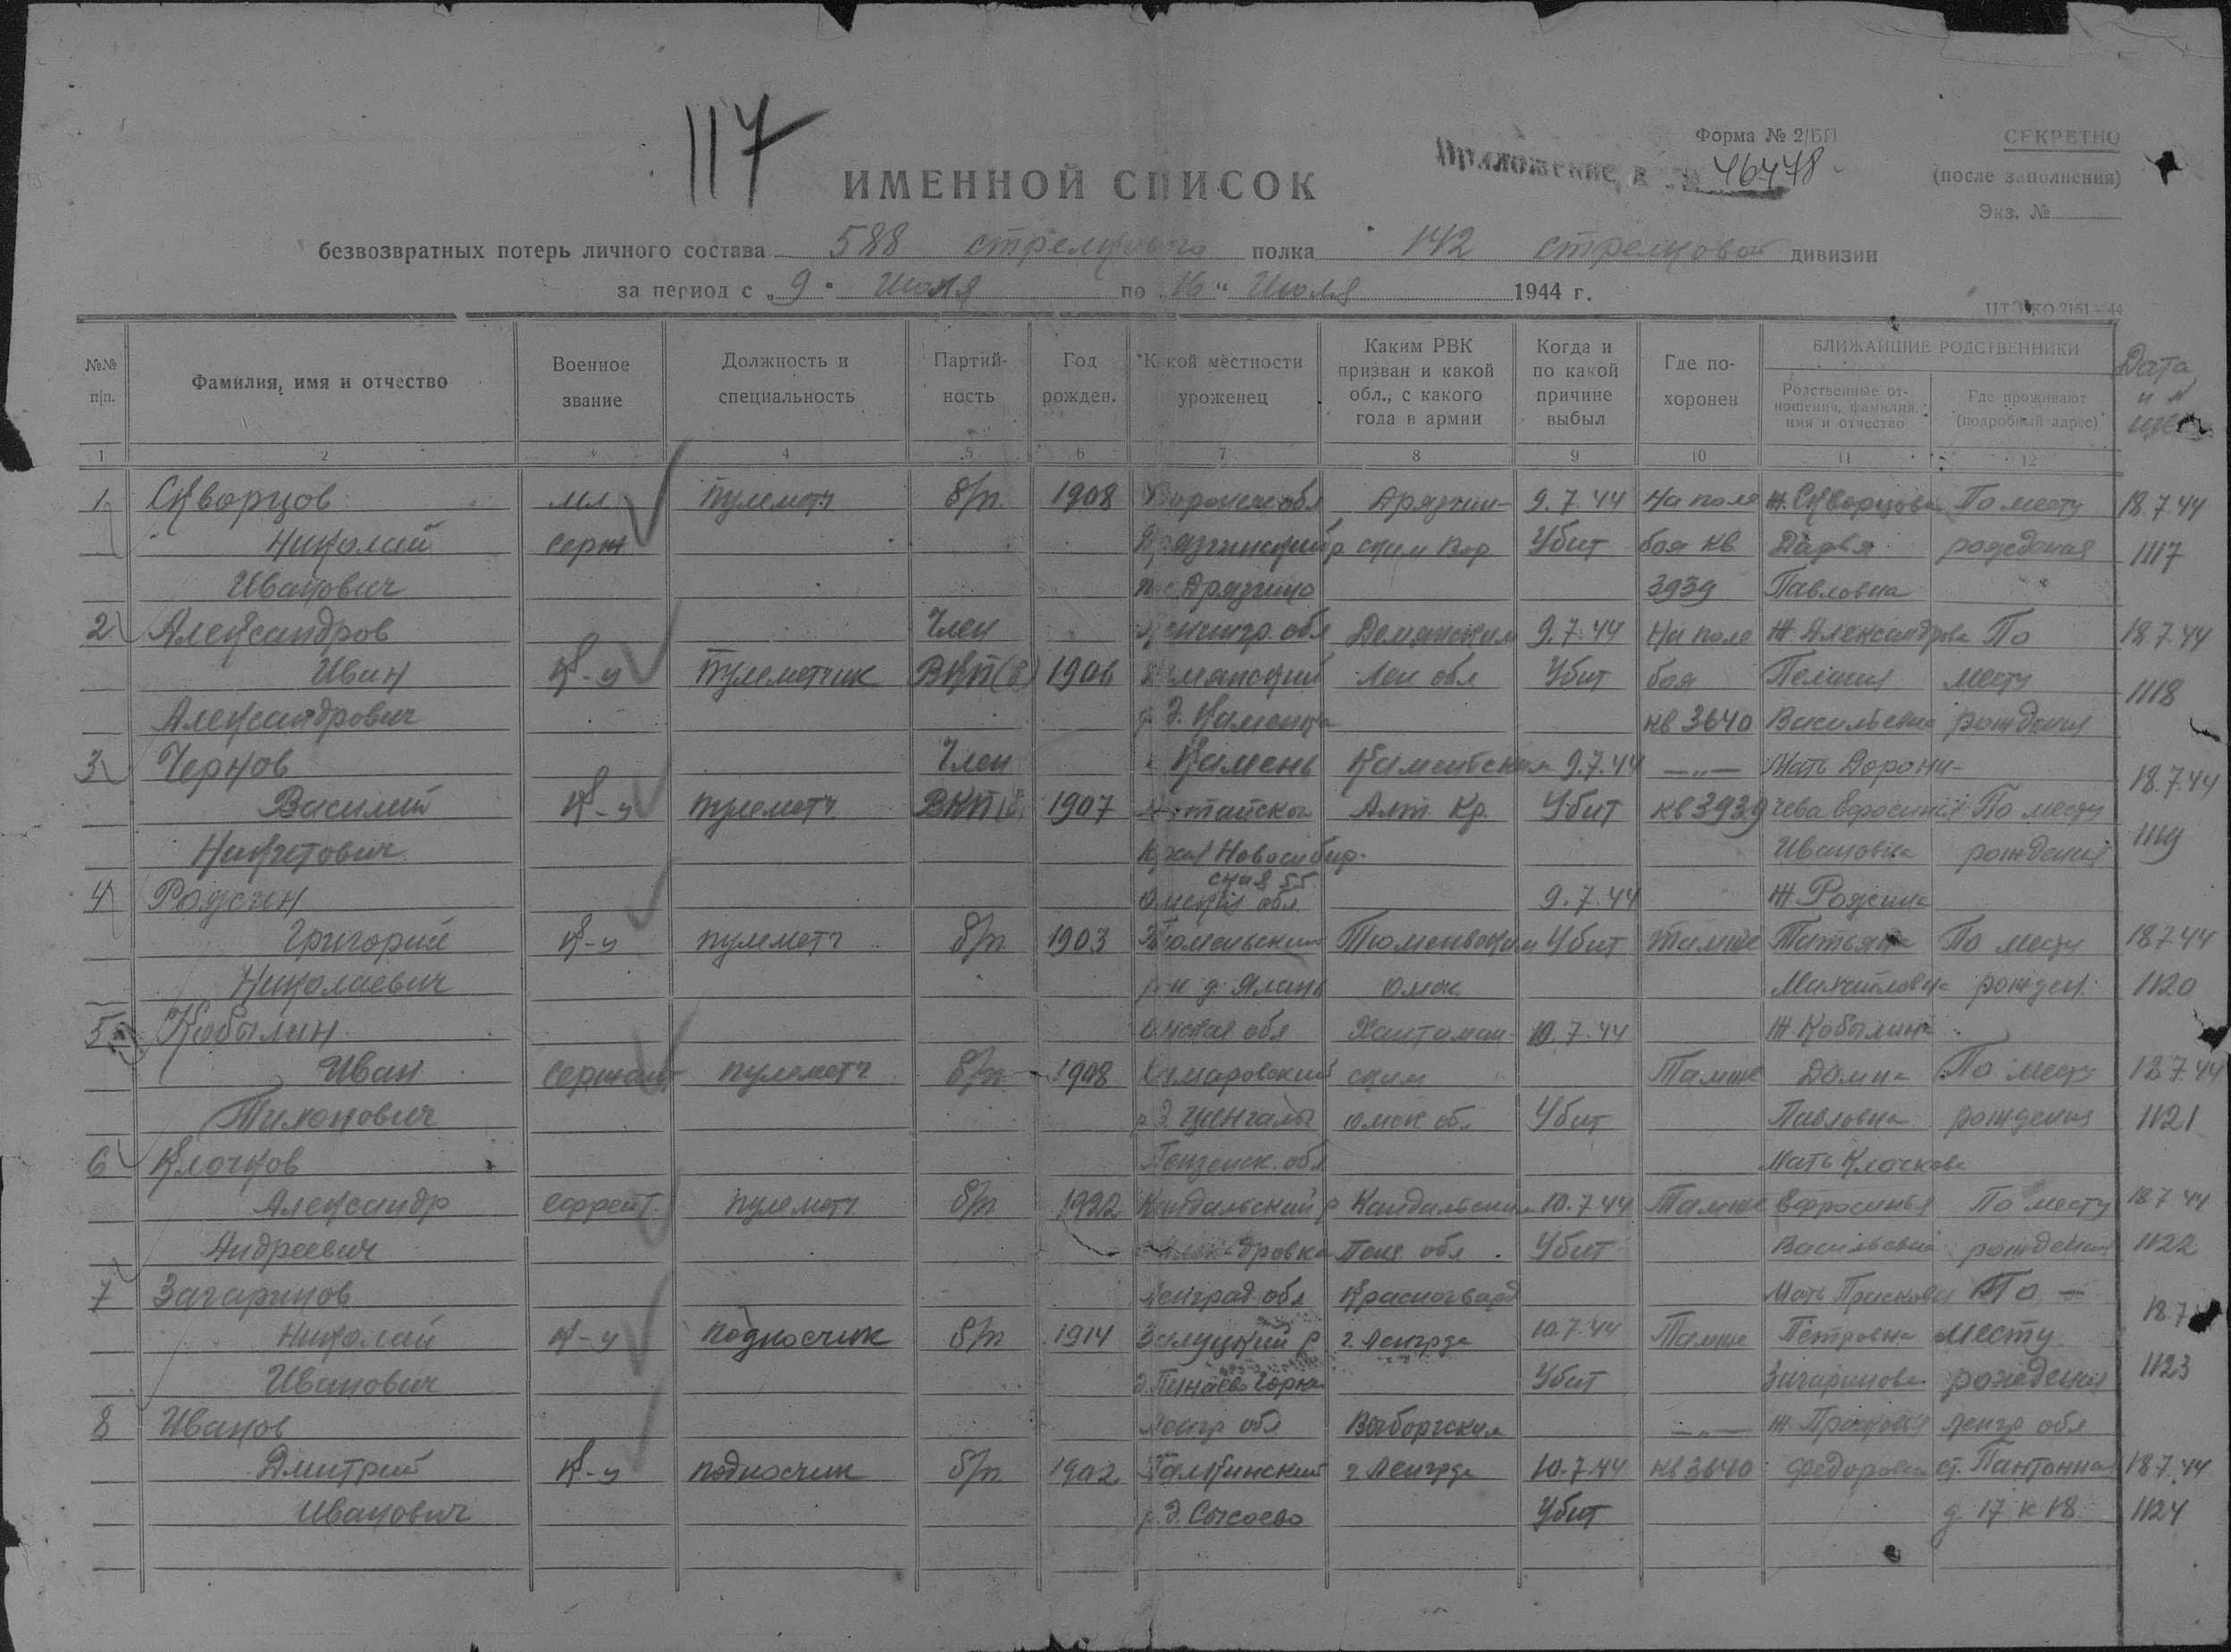 117
Форма № 2/БП
СЕКРЕТНО
Приложение к № 46478
(после заполнения)
ИМЕННОЙ СПИСОК
Экз. №
безвозвратных потерь личного состава 588 стрелкового полка 142 стрелковой дивизии
за период с „9" Июля по „16" Июля 1944 г.
№№ п/п. Фамилия, имя и отчество Военное звание Должность и специальность Партийность Год рожден. Какой местности уроженец Каким РВК призван и какой обл., с какого года в армии Когда и по какой причине выбыл Где похоронен БЛИЖАЙШИЕ РОДСТВЕННИКИ Родственные отношения, фамилия, имя и отчество Где проживают (подробный адрес) Дата и №
1 2 3 4 5 6 7 8 9 10 11 12
1 Скворцов мл. пулеметч б/п. 1908 Воронеж обл Дрязгин- 9.7.44 На поле ж. Скворцова По месту 18.7.44
Николай серж Дрязгинский р ским Вор Убит боя кв Дарья рождения 1117
Иванович с Дрязгино 3939 Павловна
2 Александров Член Ленингр. обл Демянским 9.7.44 На поле Ж. Александрова По 18.7.44
Иван К-ц Пулеметчик ВКП(б) 1906 Демянский Лен обл Убит боя Пелагия месту 1118
Александрович р. д. Каменка кв 3640 Васильевна рождения
3 Чернов Член г Камень Каменским 9.7.44 —„— Мать Дорони-
Василий К-ц пулеметч ВКП(б) 1907 Алтайского Алт. Кр. Убит кв 3939 чева Ефросинья По месту 18.7.44
Никитович Края Новосибир- Ивановна рождения 1119
ская 55
4 Родгин Омская обл 9.7.44 Ж.
Григорий К-ц пулеметч б/п 1903 Тюменьский Тюменьским Убит Тамже Татьяна По месту 18.7.44
Николаевич р-н д. Яланы Омск Михайловна рожден. 1120
5 Кобылин Омская обл Хантаман- 10.7.44 Ж Кобылина
Иван сержант пулеметч б/п 1908 Самаровский ским Тамже Домна По месту 18.7.44
Тимонович р д. Цингалы Омск об. Убит Павловна рождения 1121
6 Клочков Пензенск. обл Мать Клочкова
Александр ефрейт. пулеметч б/п 1922 Кандальский р Кандальским 10.7.44 Тамже Ефросинья По месту 18.7.44
Андреевич Пенз обл. Убит Васильевна рождения 1122
7 Загаринов Ленград. обл Красногвард Мать Прасковья По —
Николай К-ц подносчик б/п 1914 Залуцкий р г. Ленгрда 10.7.44 Тамже Петровна месту 18.7
Иванович д. Пинаевы Горки Убит Загаринова рождения 1123
8 Иванов Ленгр обл Выборгским —„— ж. Прасковья Ленгр обл
Дмитрий К-ц подносчик б/п 1902 г. Ленгрда 10.7.44 кв 3640 Федоровна ст. 18.7.44
Иванович р. д. Сысоево Убит д. 17 к 18 1124